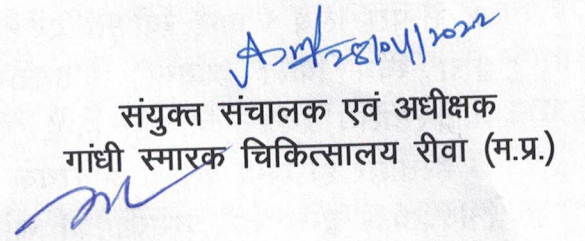 28/04/2022
संयुक्त संचालक एवं अधीक्षक
गांधी स्मारक चिकित्सालय रीवा (म.प्र.)